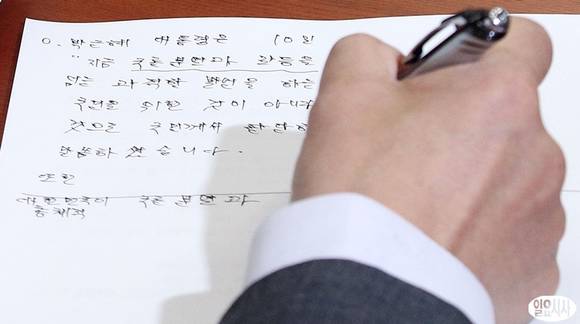 0. 박근혜 대통령은 10일
"지금 국론분열과 갈등을
넘는 과격한 발언을 하는
국민을 위한 것이 아니라
것으로 국민께서 판단하
말씀하셨습니다.
또한
대한민국이 국론분열과
총체적
일요시사